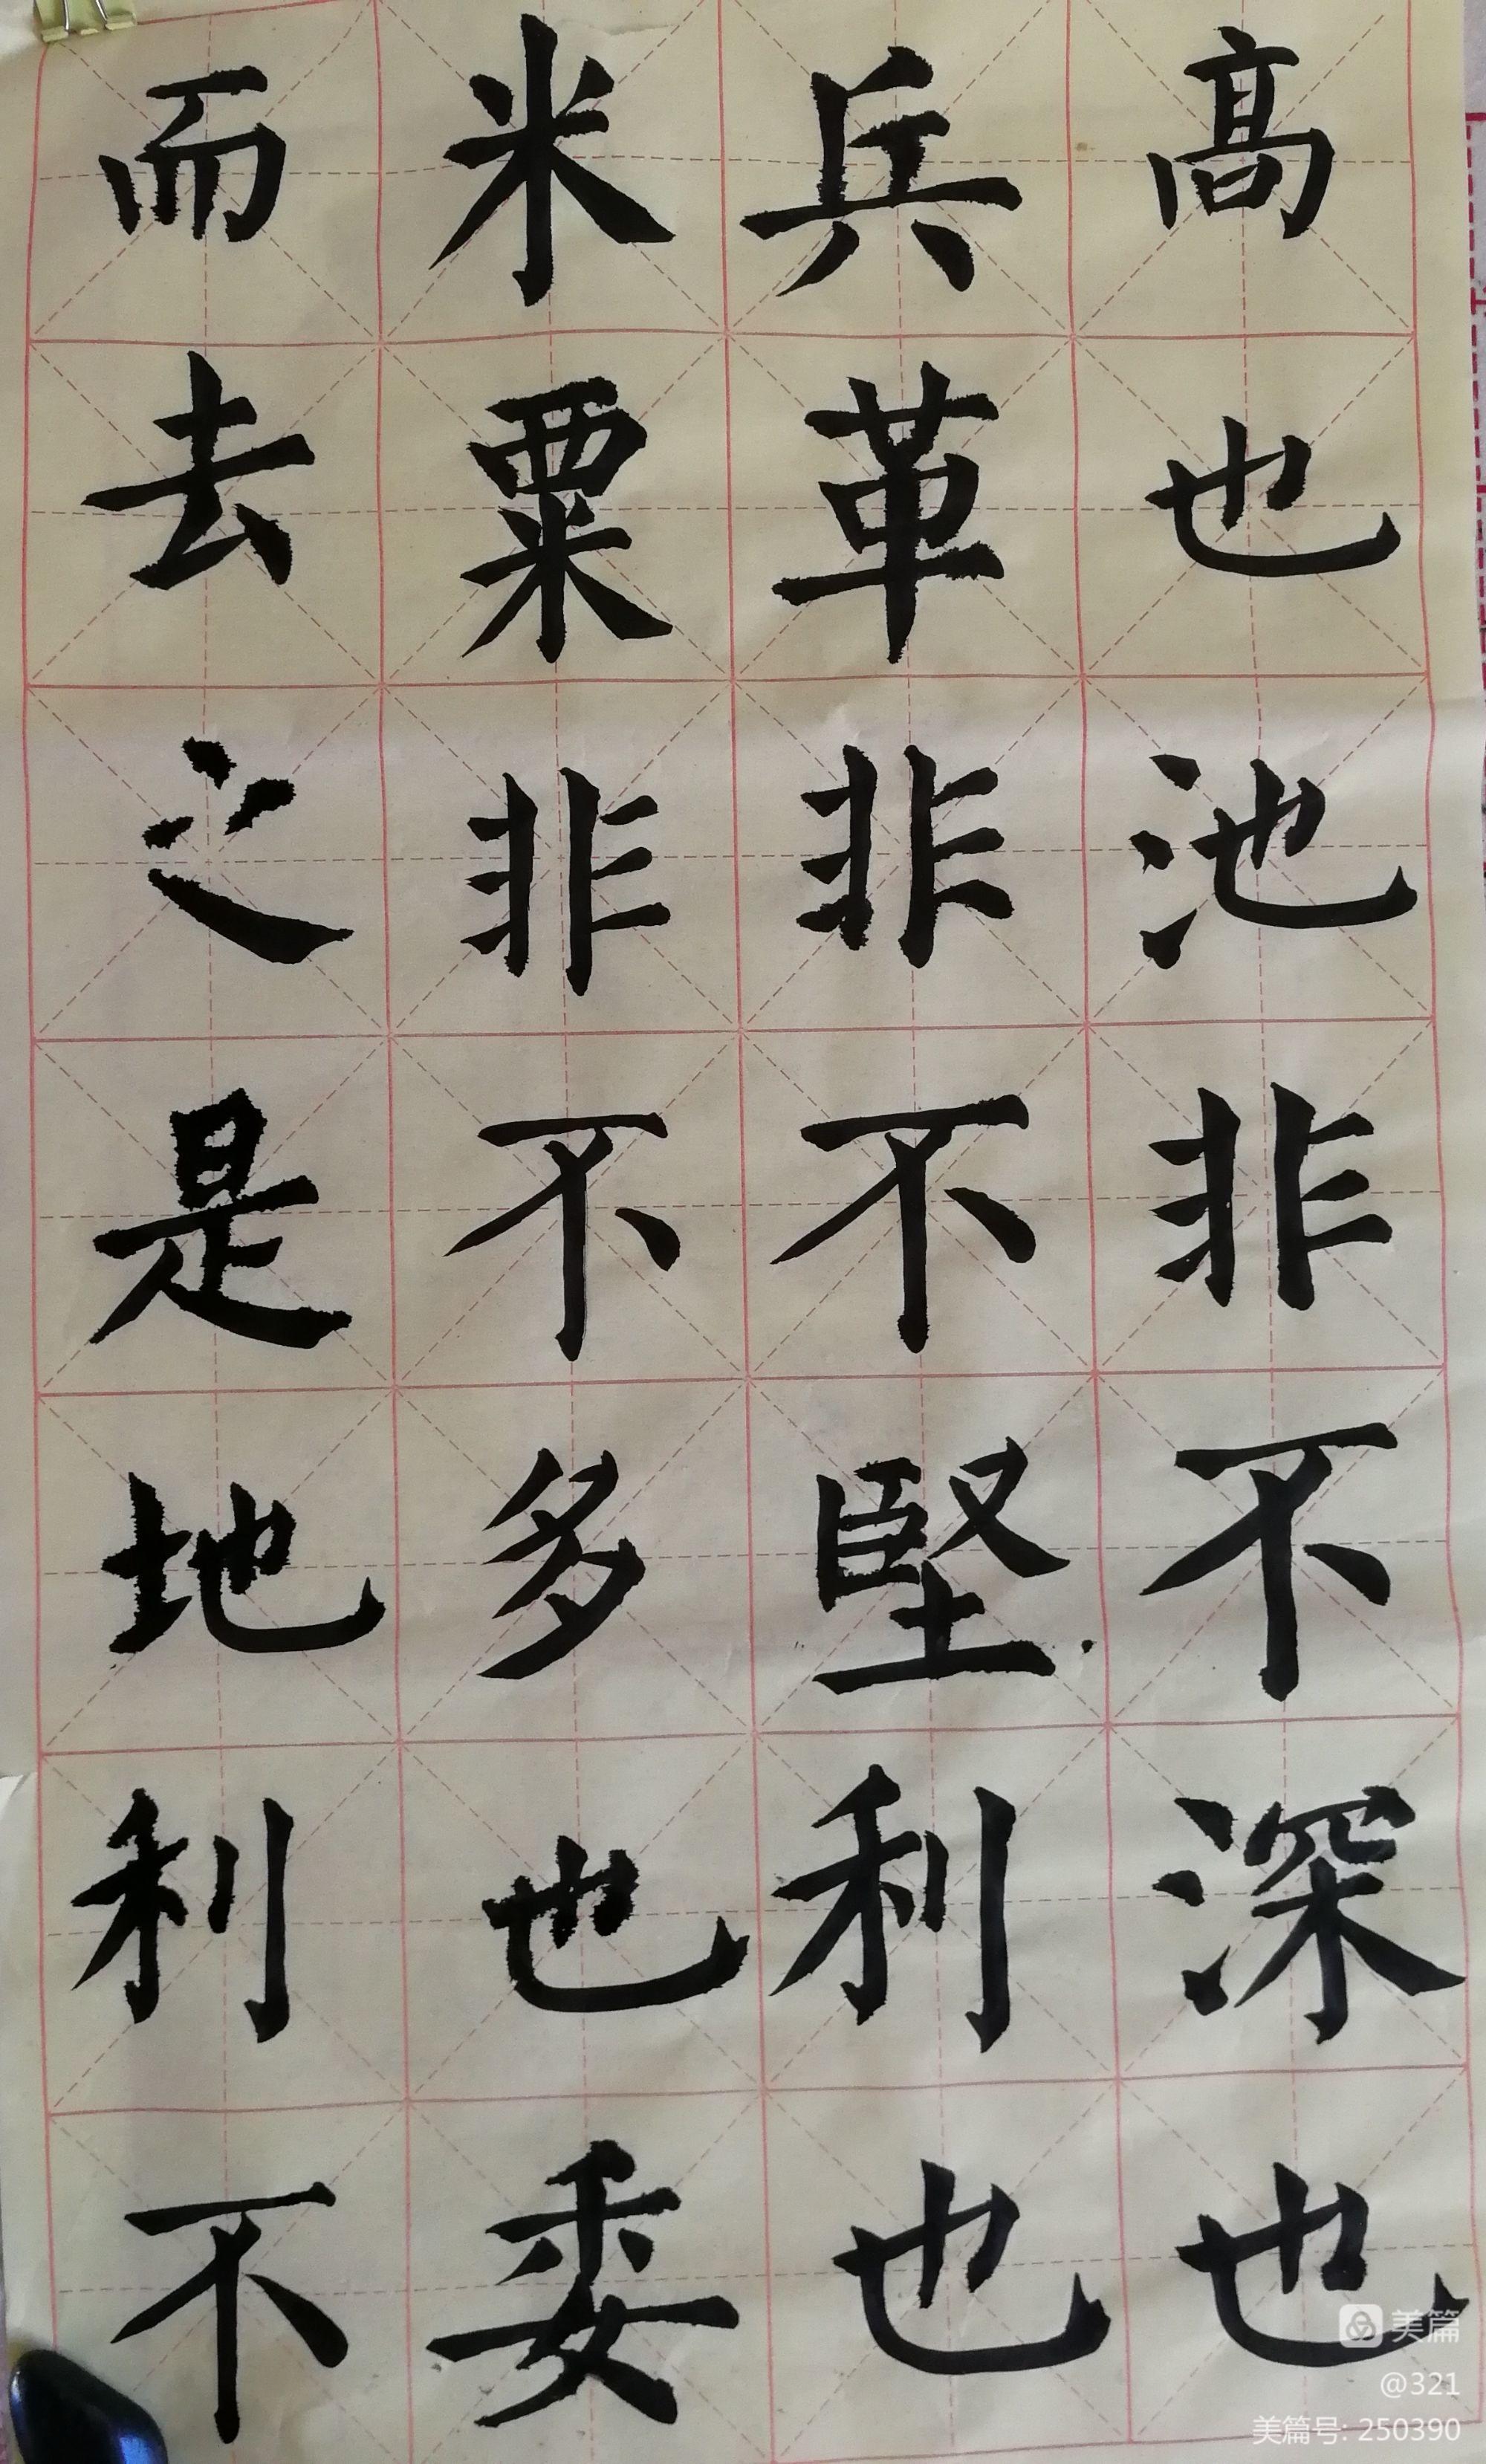 高也池非不深也
兵革非不堅利也
米粟非不多也委
而去之是地利不
美篇
@321
美篇号: 250390